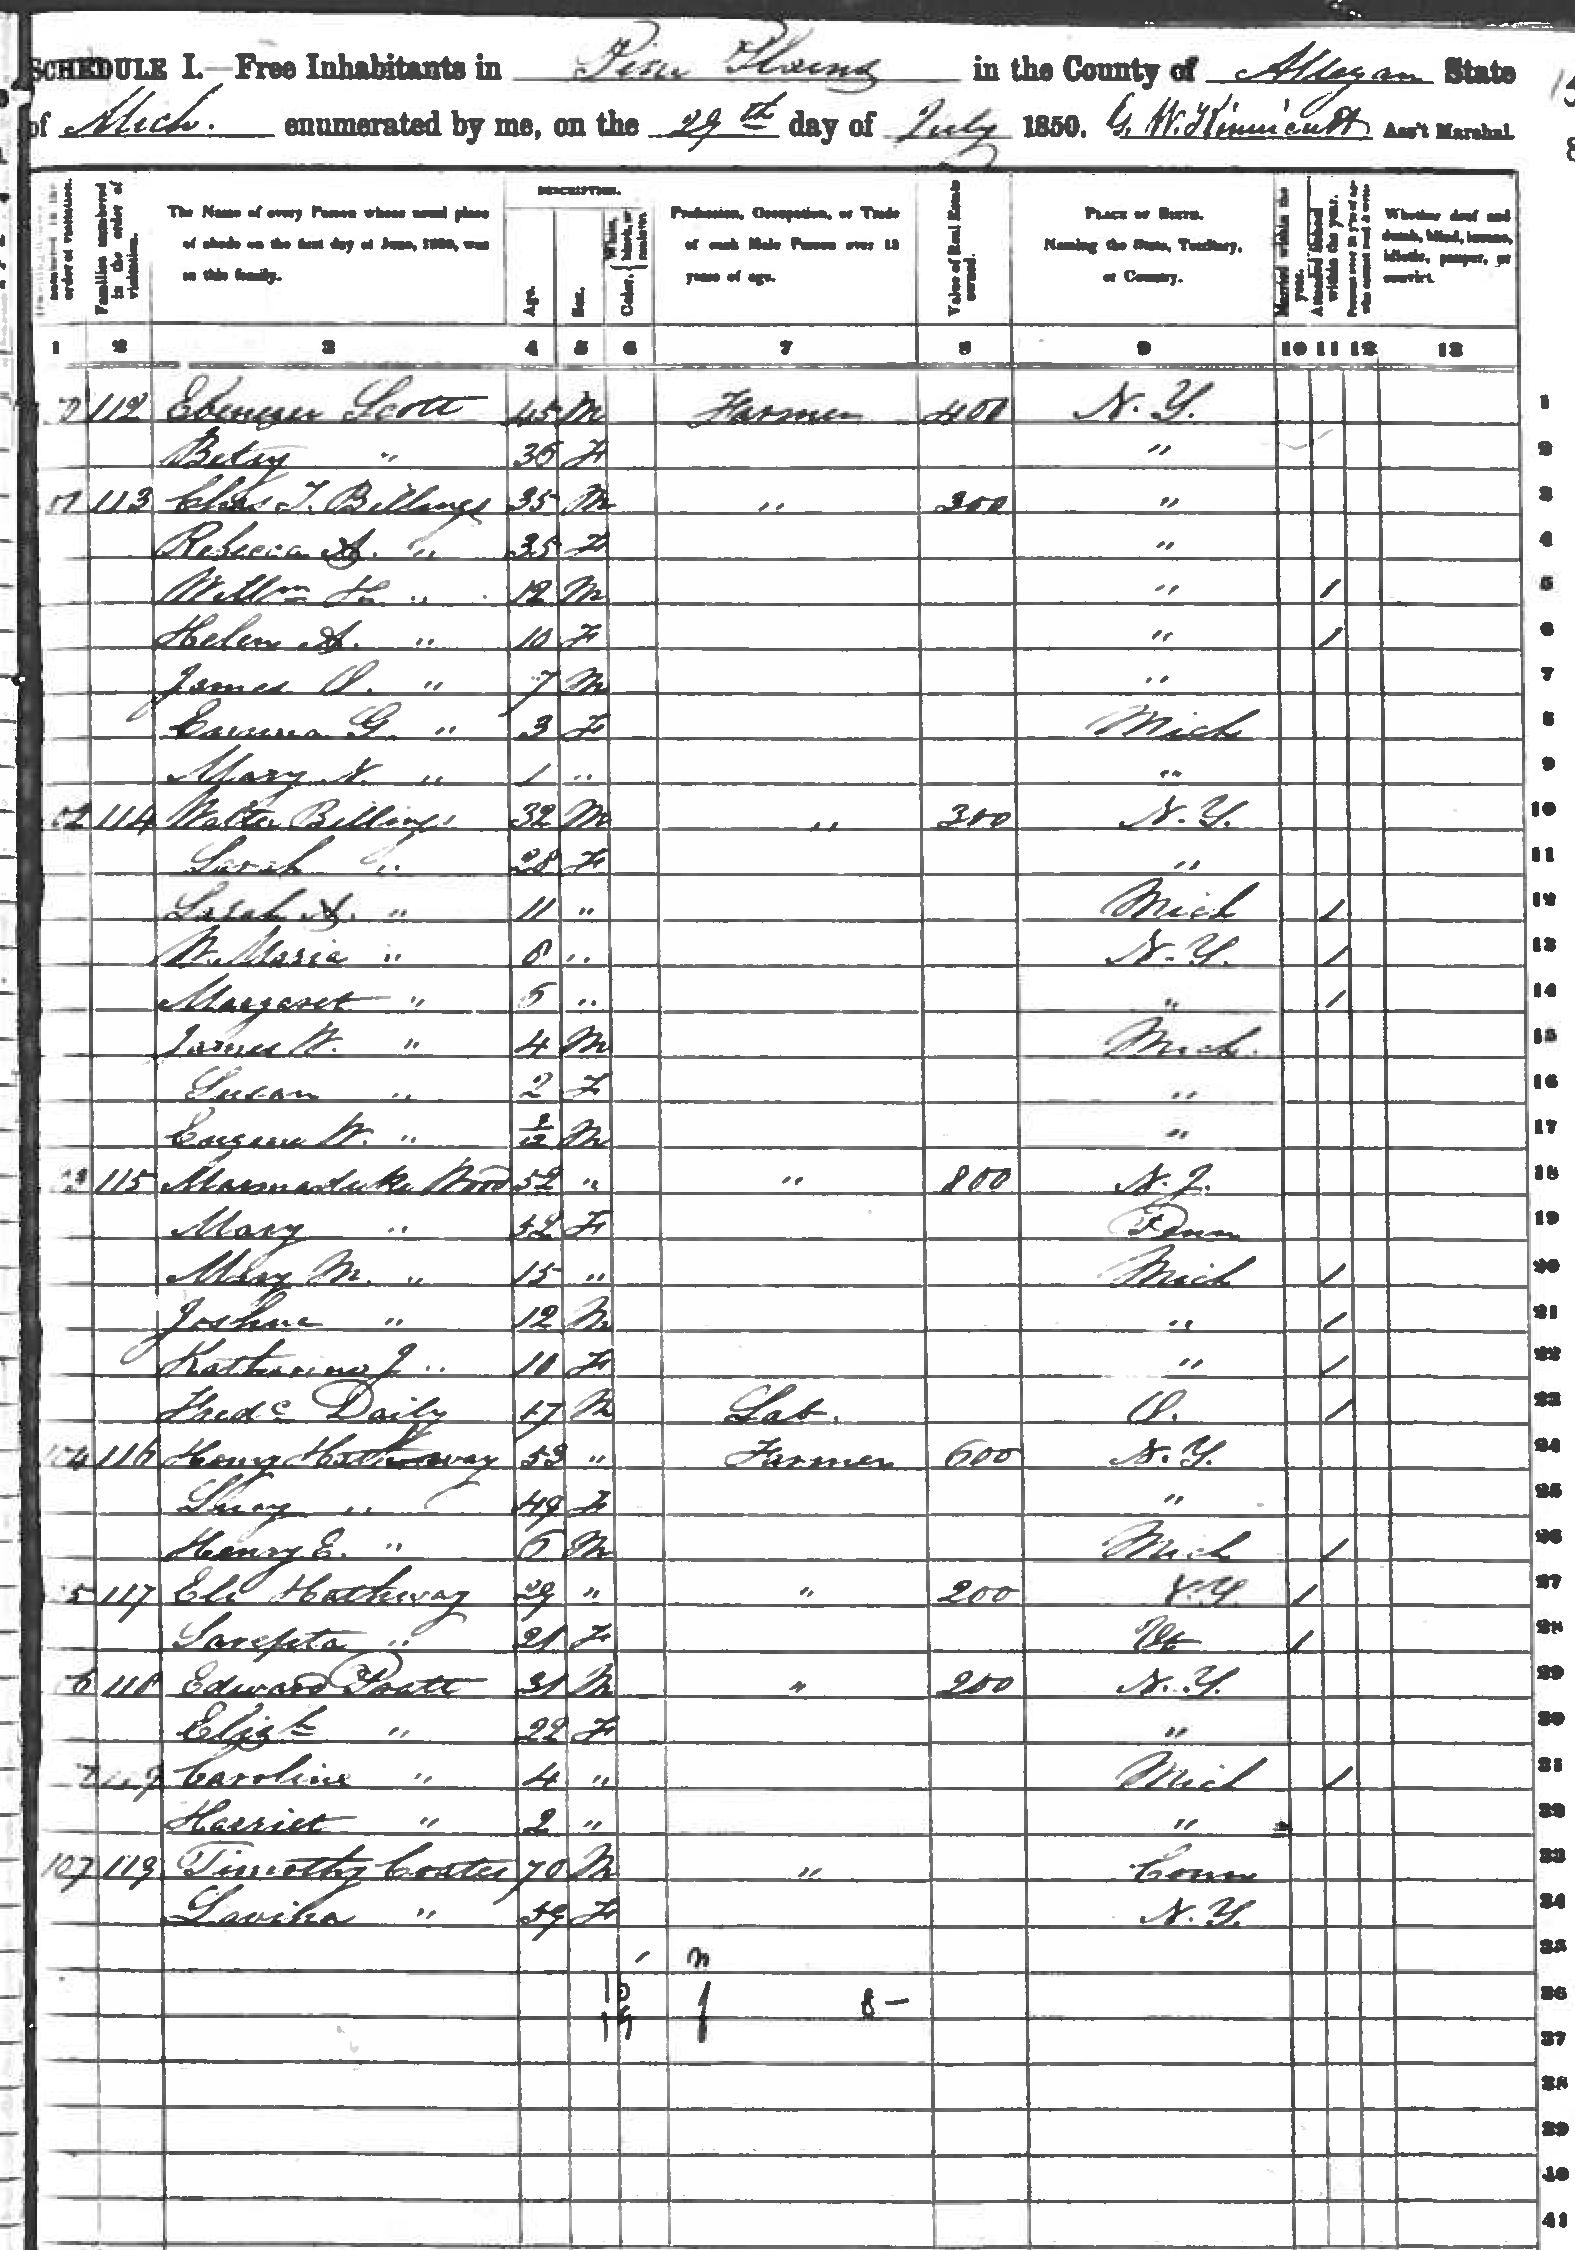 SCHEDULE I.—Free Inhabitants in Pine Plains in the County of Allegan State
of Mich. enumerated by me, on the 29th day of July 1850. G. W. Kinnicutt Ass't Marshal.
DESCRIPTION.
numbered in the order of visitation.
Families numbered in the order of visitation.
The Name of every Person whose usual place of abode on the first day of June, 1850, was in this family.
Age.
Sex.
Color, White, black, or mulatto.
Profession, Occupation, or Trade of each Male Person over 15 years of age.
Value of Real Estate owned.
PLACE OF BIRTH. Naming the State, Territory, or Country.
Married within the year.
Attended School within the year.
Persons over 20 y'rs of age who cannot read & write.
Whether deaf and dumb, blind, insane, idiotic, pauper, or convict.
1 2 3 4 5 6 7 8 9 10 11 12 13
112 Ebenezer Scott 45 M Farmer 400 N. Y. 1
Betsy " 36 F " 2
113 Chas T. Billings 35 M " 300 " 3
Rebecca A. " 35 F " 4
Willm H. " 12 M " / 5
Helen A. " 10 F " / 6
James O. " 7 M " 7
Emma G. " 3 F Mich 8
Mary N. " 1 " " 9
114 Walter Billings 32 M " 300 N. Y. 10
Sarah " 28 F " 11
Sarah A. " 11 " Mich / 12
W. Maria " 8 " N. Y. / 13
Margaret " 5 " " / 14
James W. " 4 M Mich. 15
Susan " 2 F " 16
Eugene W. " M " 17
115 Marmaduke Wood 52 " " 800 N. J. 18
Mary " 52 F Penn 19
Mary M. " 15 " Mich / 20
Joshua " 12 M " / 21
Katharine J " 10 F " / 22
Fredc Daily 17 M Lab. O. / 23
116 Henry Hathaway 53 " Farmer 600 N. Y. 24
Lucy " 49 F " 25
Henry E. " 6 M Mich / 26
117 Eli Hathway 29 " " 200 N. Y. / 27
Sarepta " 21 F Vt / 28
118 Edward Pratt 31 M " 200 N. Y. 29
Elizth " 22 F " 30
Caroline " 4 " Mich / 31
Harriet " 2 " " 32
107 119 Timothy Coates 70 M " Conn 33
Lavina " 59 F N. Y. 34
35
36
37
38
39
40
41